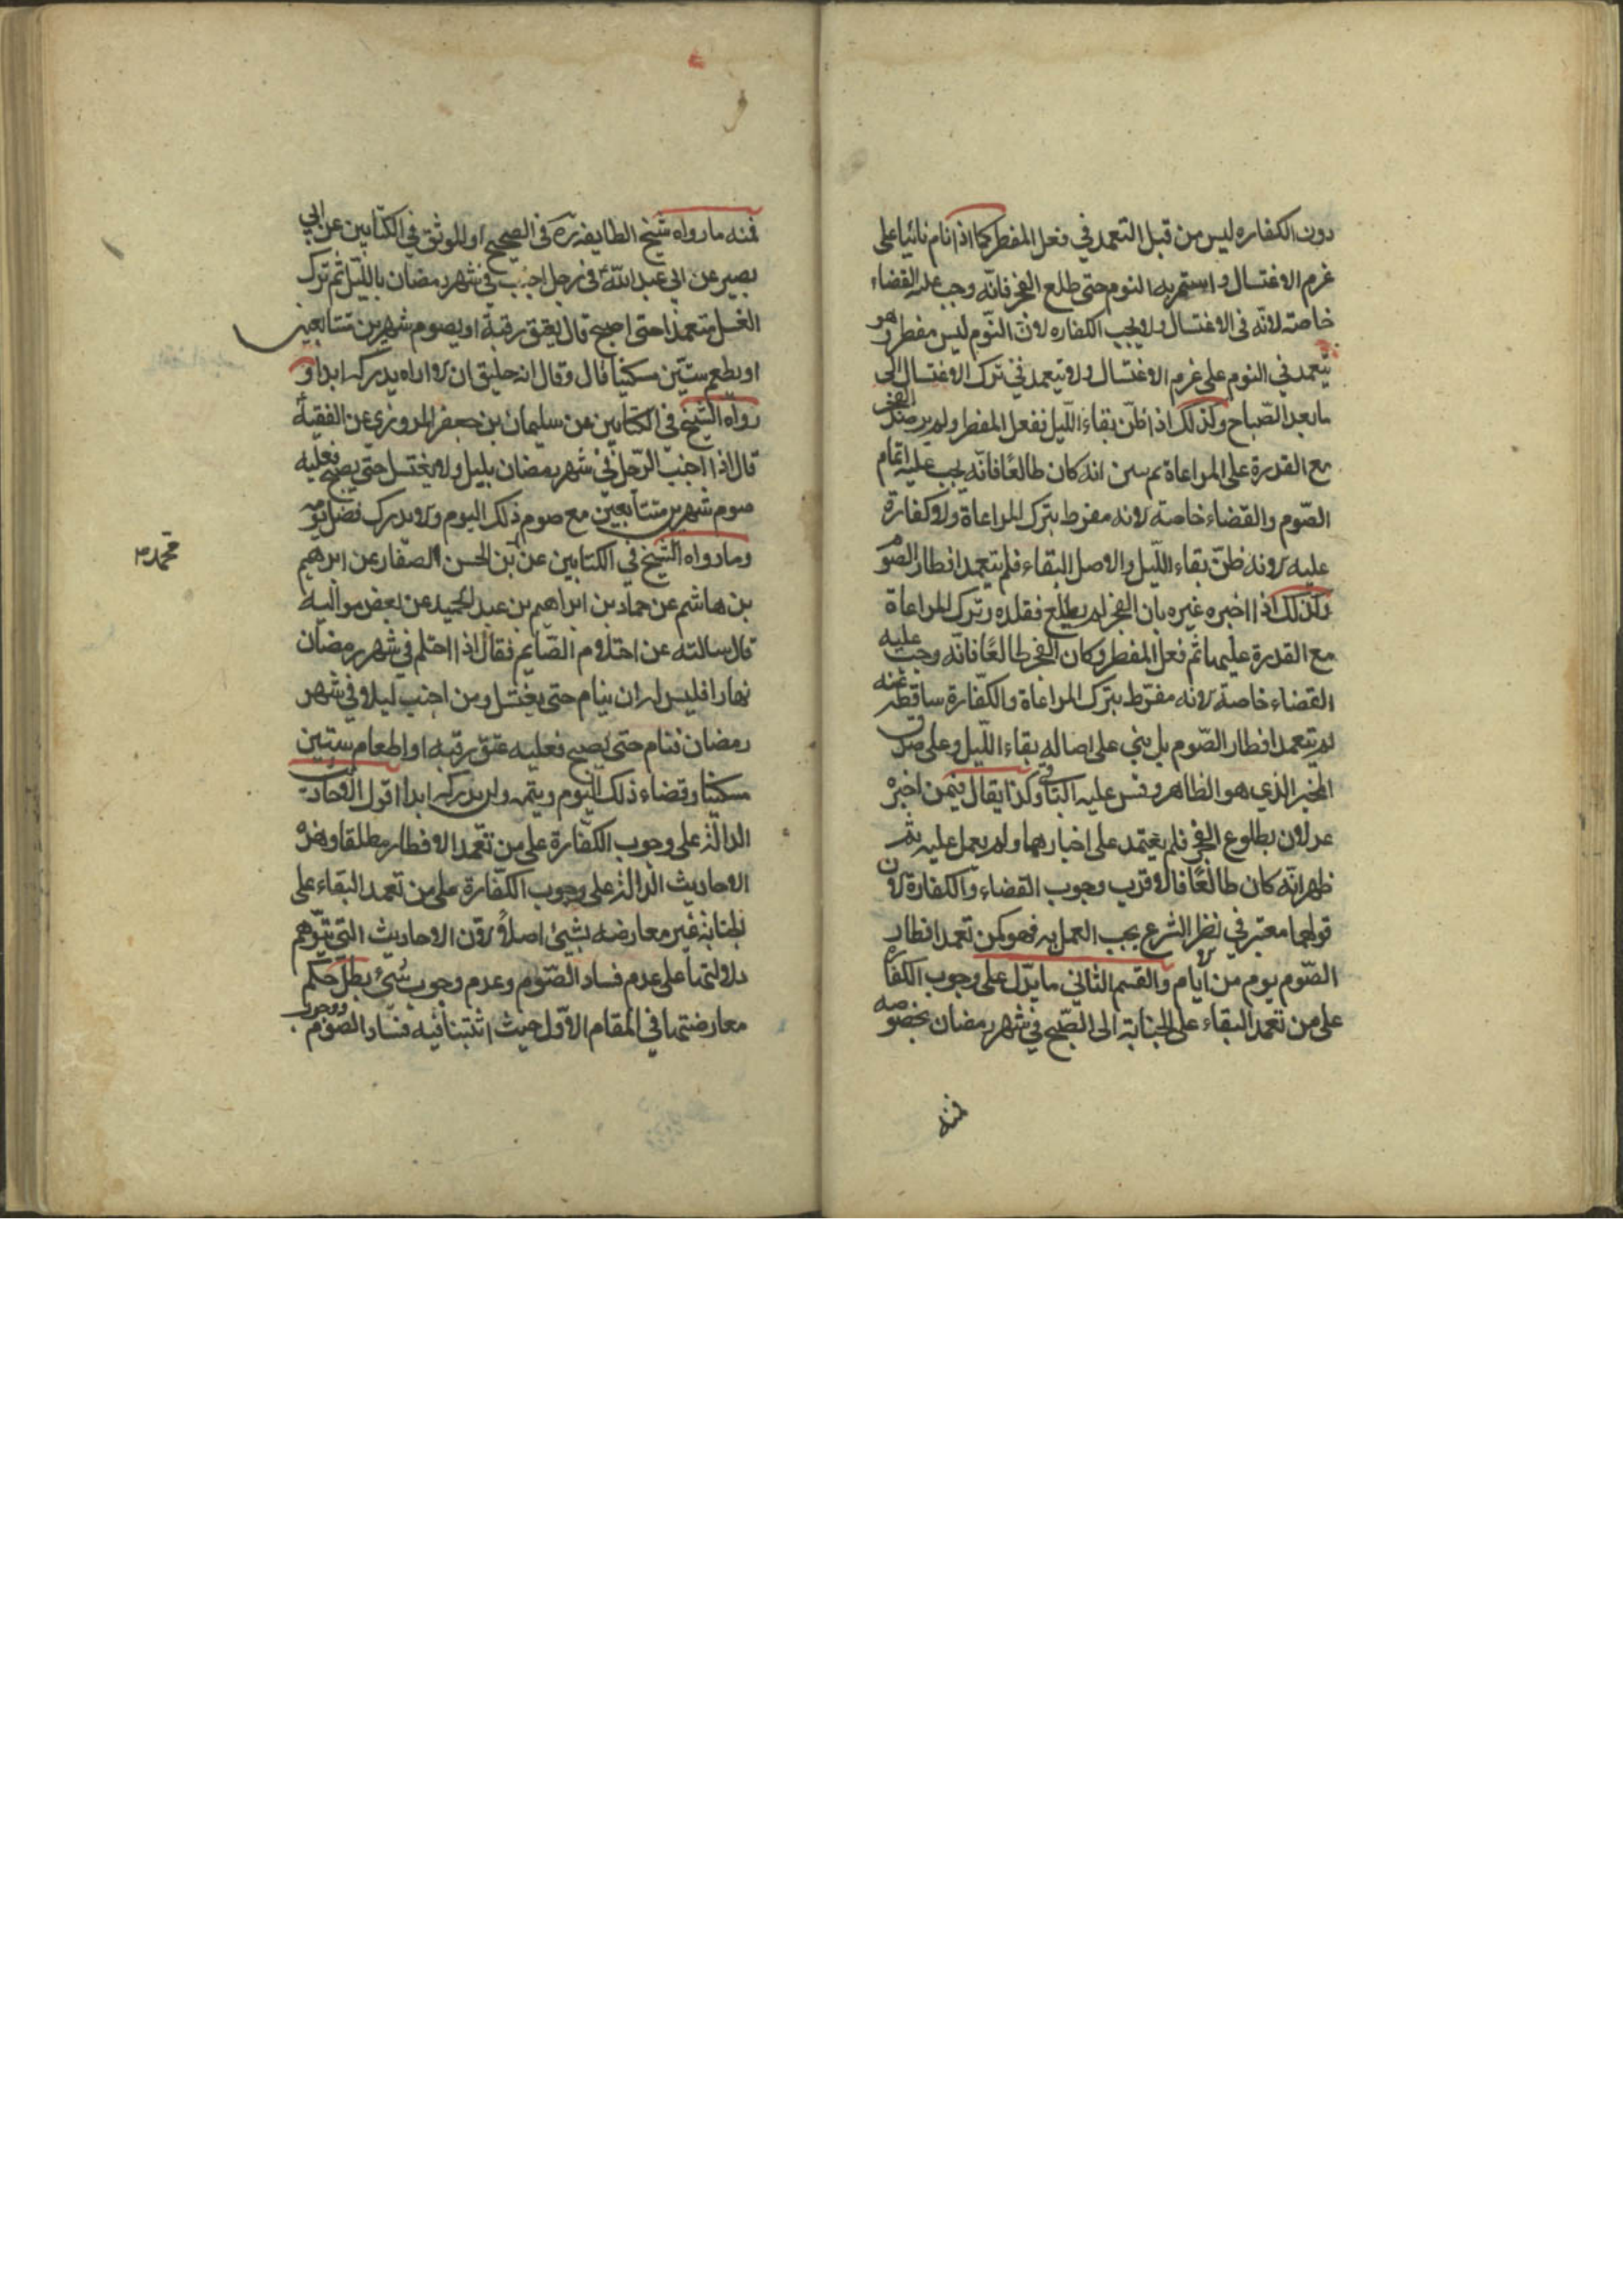 دون الكفاره ليس من قبل التعمد في فعل المفطر كما اذا نام ثانيا على
عزم الاغتسال واستمر به النوم حتى طلع الفجر فانّه وجب عليه القضاء
خاصة لانّه في الاغتسال ولا يجب الكفاره لانّ النّوم ليس مفطر وهو
يتعمد في النوم على عزم الاغتسال ولا يتعمد في ترك الاغتسال الى
ما بعد الصّباح وكذلك اذا ظنّ بقاء اللّيل ففعل المفطر ولم يرصد الفجر
مع القدرة على المراعاة ثم انه كان طالعًا فانّه يجب عليه اتمام
الصّوم والقضاء خاصة لانه مفرط بترك المراعاة ولا كفارة
عليه لانه ظنّ بقاء اللّيل والاصل البقاء فلم يتعمد افطار الصّوم
وكذلك اذا اخبره غيره بان الفجر لم يطلع فقلده وترك المراعاة
مع القدرة عليها ثم فعل المفطر وكان الفجر طالعًا فانّه وجب عليه
القضاء خاصة لانه مفرّط بترك المراعاة والكفّارة ساقطة عنه
لم يتعمد افطار الصّوم بل بنى على اصاله بقاء اللّيل وعلى صدق
المخبر الذي هو الظاهر وقس عليه الباقي وكذا يقال فيمن اخبره
عدلان بطلوع الفجر فلم يعتمد على اخبارهما ولم يعمل عليه ثم
ظهر انّه كان طالعًا فالاقرب وجوب القضاء والكفارة لان
قولهما معتبر في نظر الشرع يجب العمل به فهو كمن تعمد افطار
الصّوم يوم من ايام والقسم الثاني ما يدّل على وجوب الكفارة
على من تعمد البقاء على الجنابة الى الصّبح في شهر رمضان بخصوصه
فمنه
فمنه ما رواه شيخ الطايفة ره في الصحيح او الموثق في الكتابين عن ابي
بصير عن ابي عبد اللّه في رجل اجنب في شهر رمضان بالليّل ثم ترك
الغسل متعمدا حتى اصبح قال يعتق رقبة او يصوم شهرين متتابعين
او يطعم ستّين مسكينا قال وقال انه خليق ان لا اراه يدركه ابدا و
رواه الشيخ في الكتابين عن سليمان بن جعفر المروزي عن الفقيه
قال اذا اجنب الرّجل في شهر رمضان بليل ولا يغتسل حتى يصبح فعليه
صوم شهرين متتابعين مع صوم ذلك اليوم ولا يدرك فضل يومه
وما رواه الشيخ في الكتابين عن بن الحسن الصفار عن ابرهيم
محمد
بن هاشم عن حماد بن ابراهيم بن عبد الحميد عن بعض مواليه
قال سالته عن احتلام الصّايم فقال اذا احتلم في شهر رمضان
نهارا فليس له ان ينام حتى يغتسل ومن اجنب ليلا في شهر
رمضان فنام حتى يصبح فعليه عتق رقبه او اطعام ستين
مسكينا وقضاء ذلك اليوم ويتمه ولن يدركه ابدا اقول الاحاديث
الدالّة على وجوب الكفّارة على من تعمّد الافطار مطلقا وهذه
الاحاديث الدالة على وجوب الكفّارة على من تعمد البقاء على
الجنابة غير معارضه بشيئ اصلاً لانّ الاحاديث التي يتوّهم
دلالتها على عدم فساد الصّوم وعدم وجوب شيئ بطل حكم
معارضتها في المقام الاوّل حيث اثبتنا فيه فساد الصّوم ووجوب